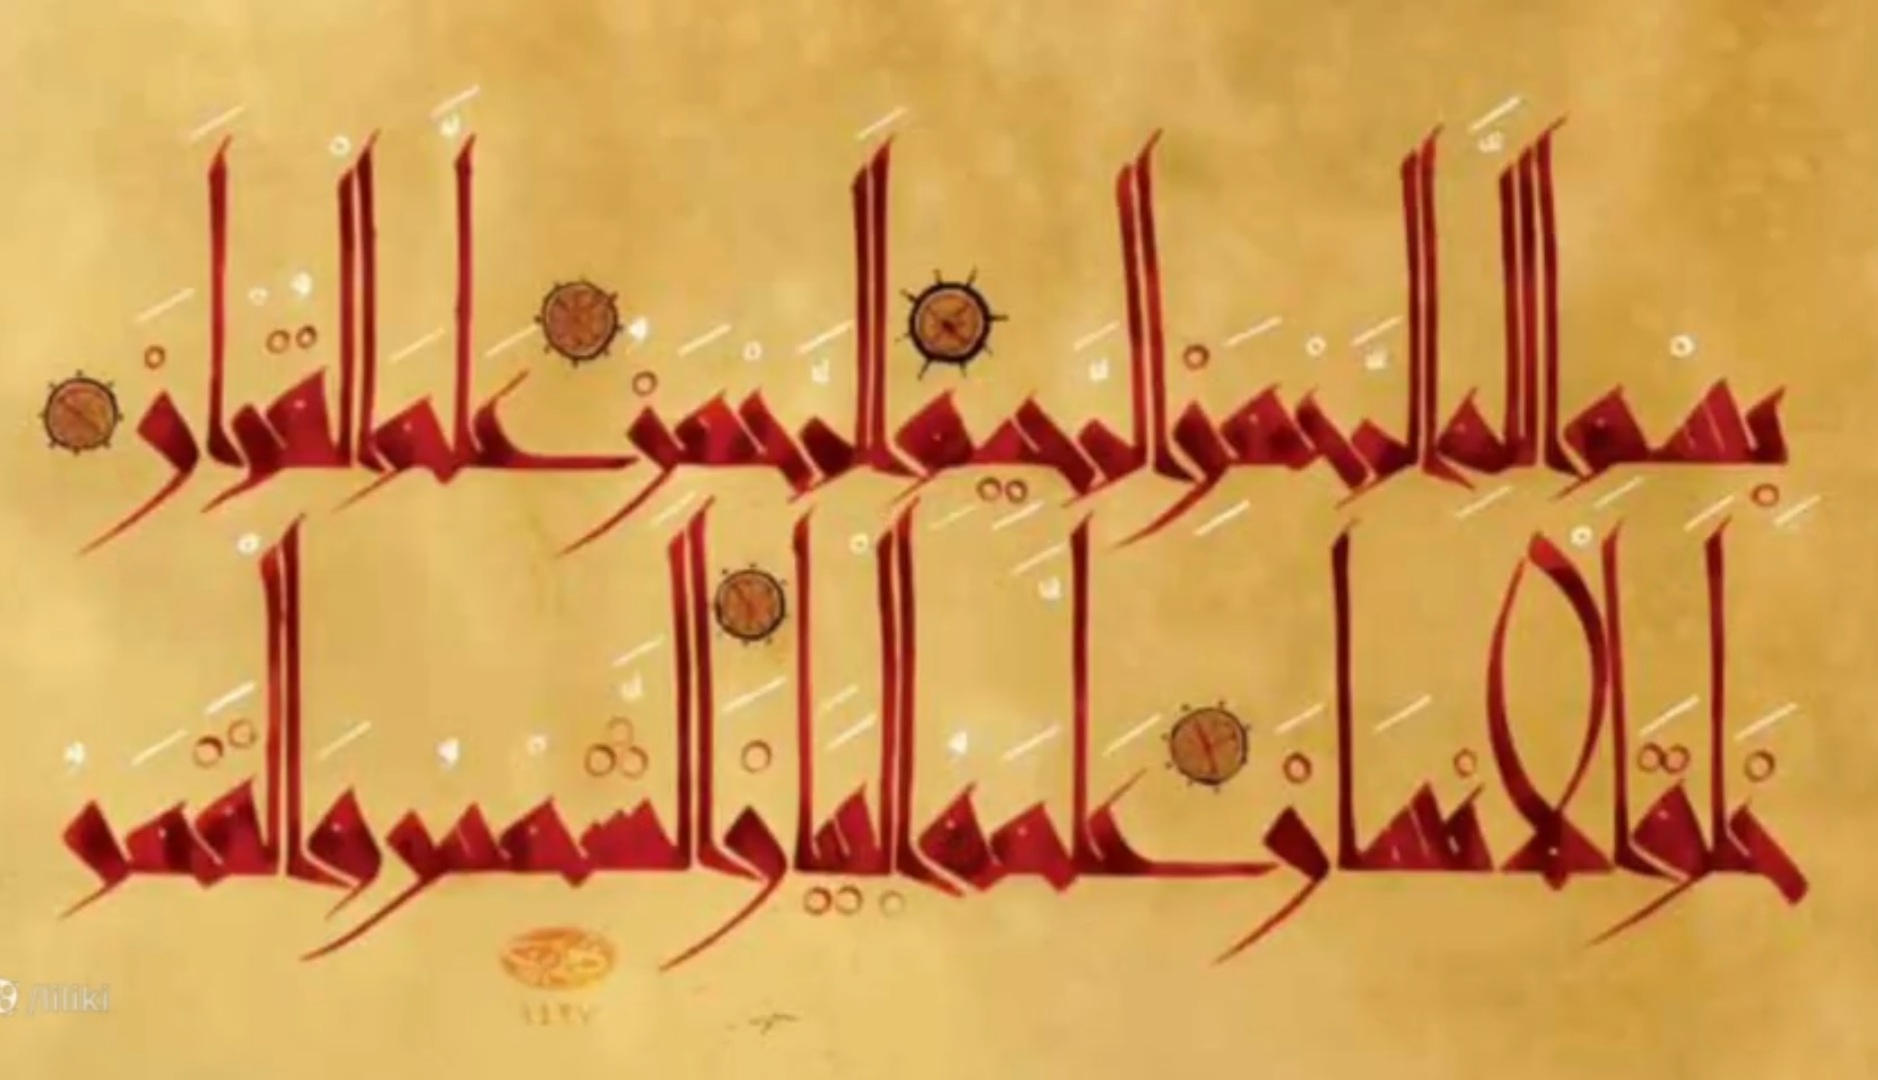 بسم الله الرحمن الرحيم الرحمن علم القرآن
خلق الإنسان علمه البيان الشمس والقمر
/liliki